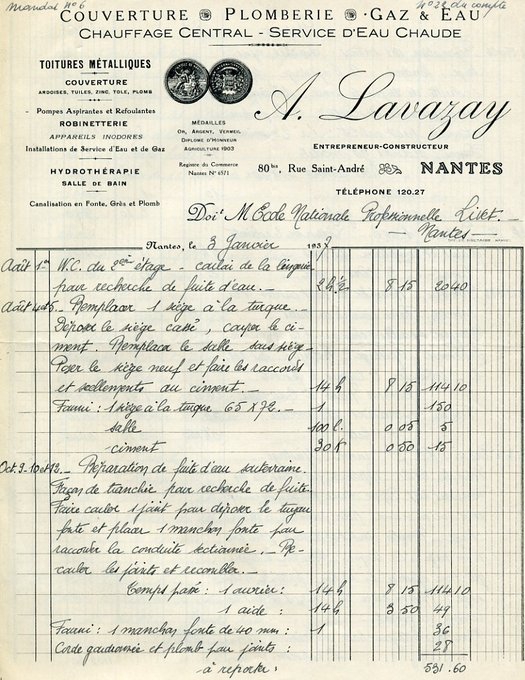 Mandat Nº 6
Nº 22 du compte
COUVERTURE - PLOMBERIE - GAZ & EAU
CHAUFFAGE CENTRAL - SERVICE D'EAU CHAUDE
TOITURES MÉTALLIQUES
COUVERTURE
ARDOISES, TUILES, ZINC, TOLE, PLOMB
Pompes Aspirantes et Refoulantes
ROBINETTERIE
APPAREILS INODORES
Installations de Service d'Eau et de Gaz
HYDROTHÉRAPIE
SALLE DE BAIN
Canalisation en Fonte, Grès et Plomb
MÉDAILLES
OR, ARGENT, VERMEIL
DIPLOME D'HONNEUR
AGRICULTURE 1903
Registre du Commerce
Nantes Nº 6571
A. Lavazay
ENTREPRENEUR-CONSTRUCTEUR
80bis, Rue Saint-André NANTES
TÉLÉPHONE 120.27
Doit M Ecole Nationale Professionnelle Livet.
- Nantes -
Nantes, le 3 Janvier 1937
Août 1er W.C. du 2ème étage - couloir de la lingerie
pour recherche de fuite d'eau. - 2h½ 8 15 20 40
Août 4 et 5. - Remplacer 1 siège à la turque. -
Déposer le siège cassé, couper le ci-
ment. Remplacer le sable sous siège -
Poser le siège neuf et faire les raccords
et scellements au ciment. - 14h 8 15 114 10
Fourni : 1 siège à la turque 65 x 72. - 1 150
sable 100 l. 0 05 5
ciment 30 K 0 50 15
Oct. 9-10 et 12. - Réparation de fuite d'eau souterraine.
Façon de tranchée pour recherche de fuite.
Faire couler 1 joint pour déposer le tuyau
fonte et placer 1 manchon fonte pour
raccorder la conduite sectionnée. - Re-
couler les joints et recombler. -
Temps passé : 1 ouvrier : 14h 8 15 114 10
1 aide : 14h 3 50 49
Fourni : 1 manchon fonte de 40 mm : 1 36
Corde goudronnée et plomb pour joints : 28
à reporter : 531.60